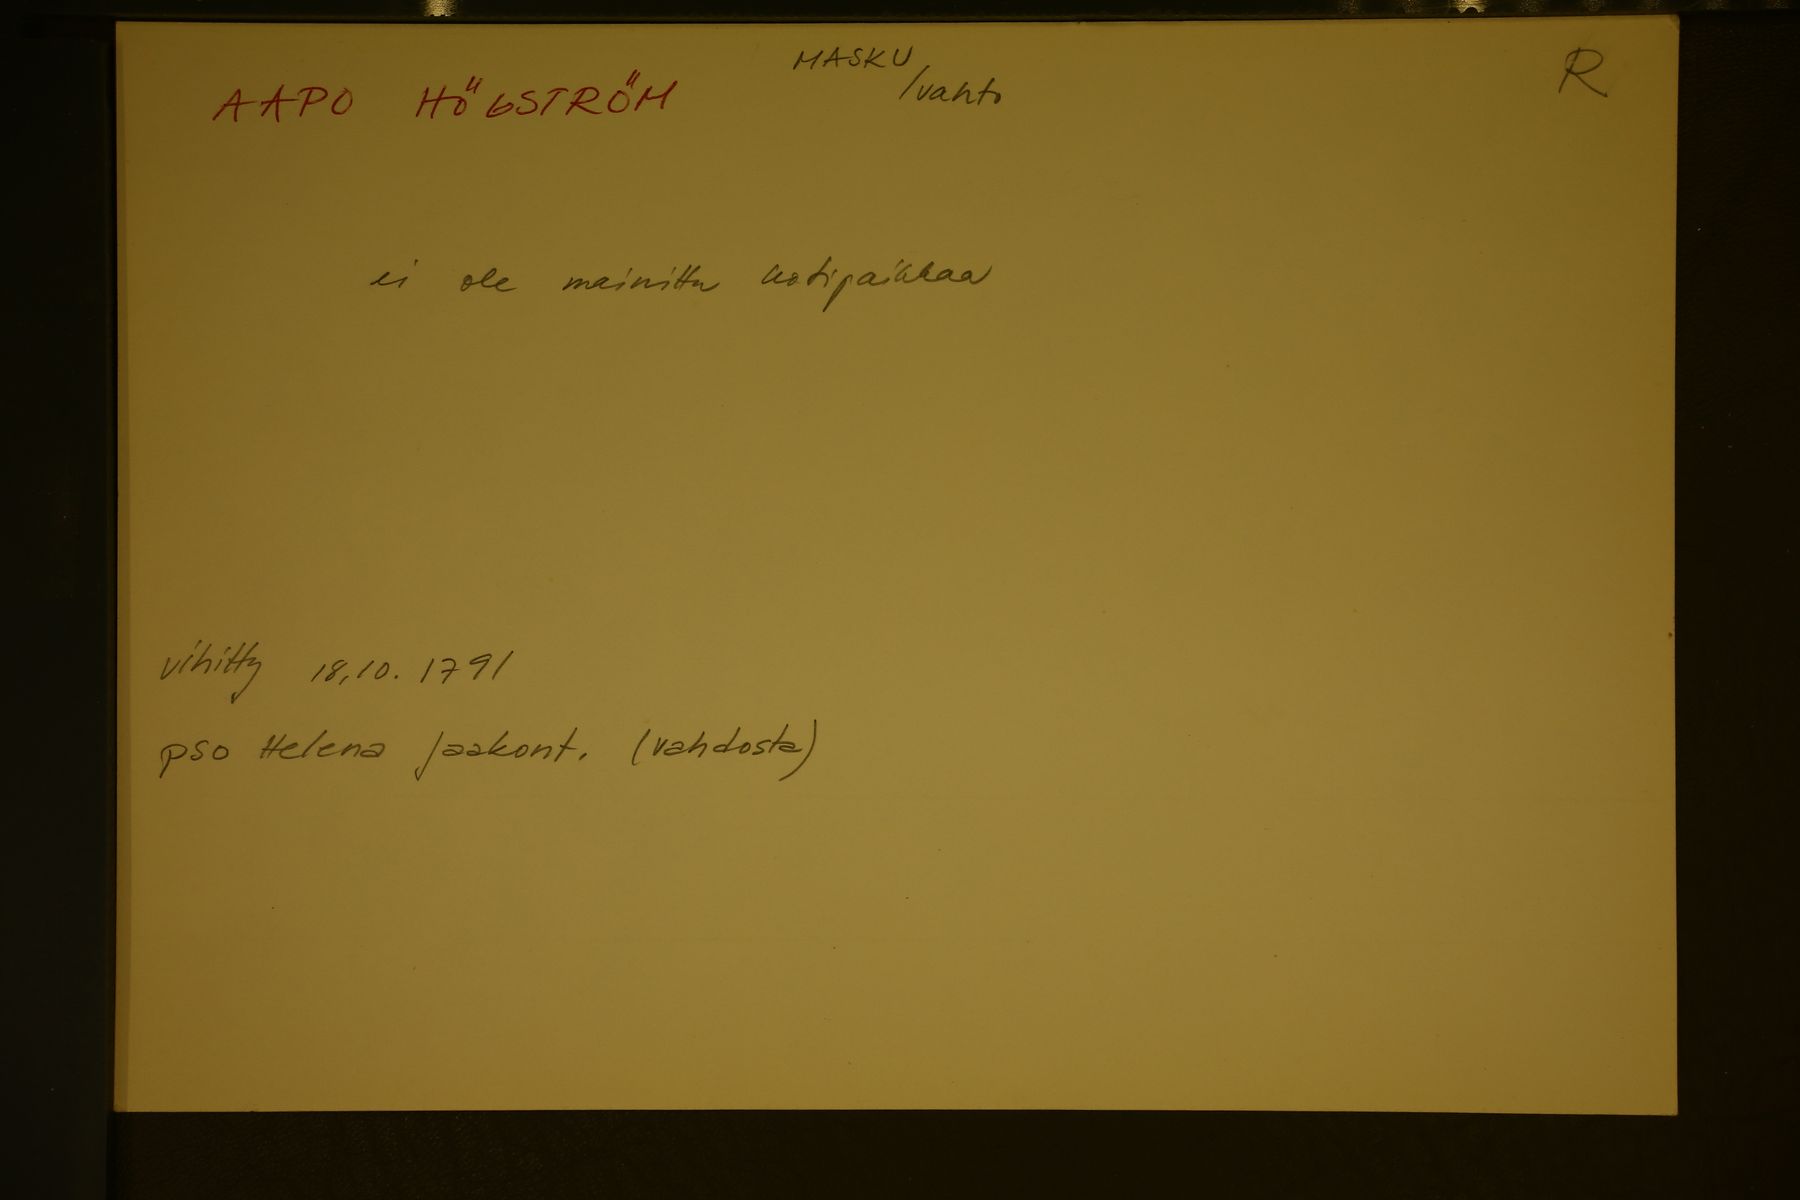 AAPO HÖGSTRÖM
MASKU
/vahto
R
ei ole mainittu kotipaikkaa
vihitty 18.10. 1791
pso Helena Jaakont. (vahdosta)